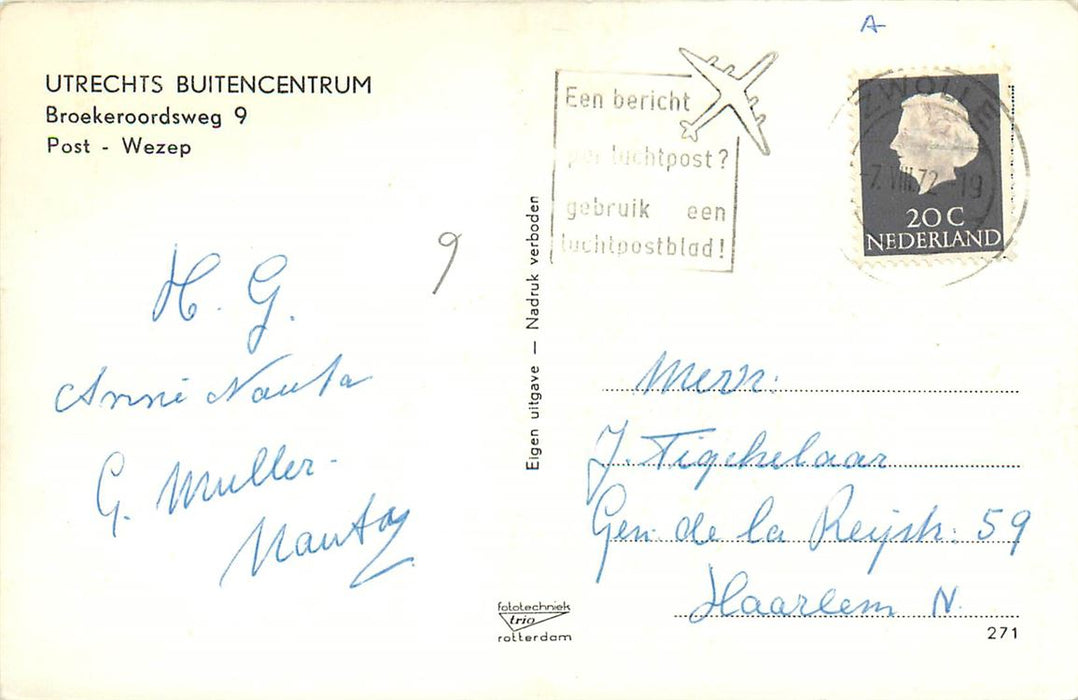 A
UTRECHTS BUITENCENTRUM
Broekeroordsweg 9
Post - Wezep
Een bericht
per luchtpost?
gebruik een
luchtpostblad!
ZWOLLE
-7.VIII.72-19
20C
NEDERLAND
9
H. G.
Anni Nauta
G. Muller-
Nauta
Eigen uitgave — Nadruk verboden
Mevr.
J. Tigchelaar
Gen. de la Reystr. 59
Haarlem N.
fototechniek
trio
rotterdam
271